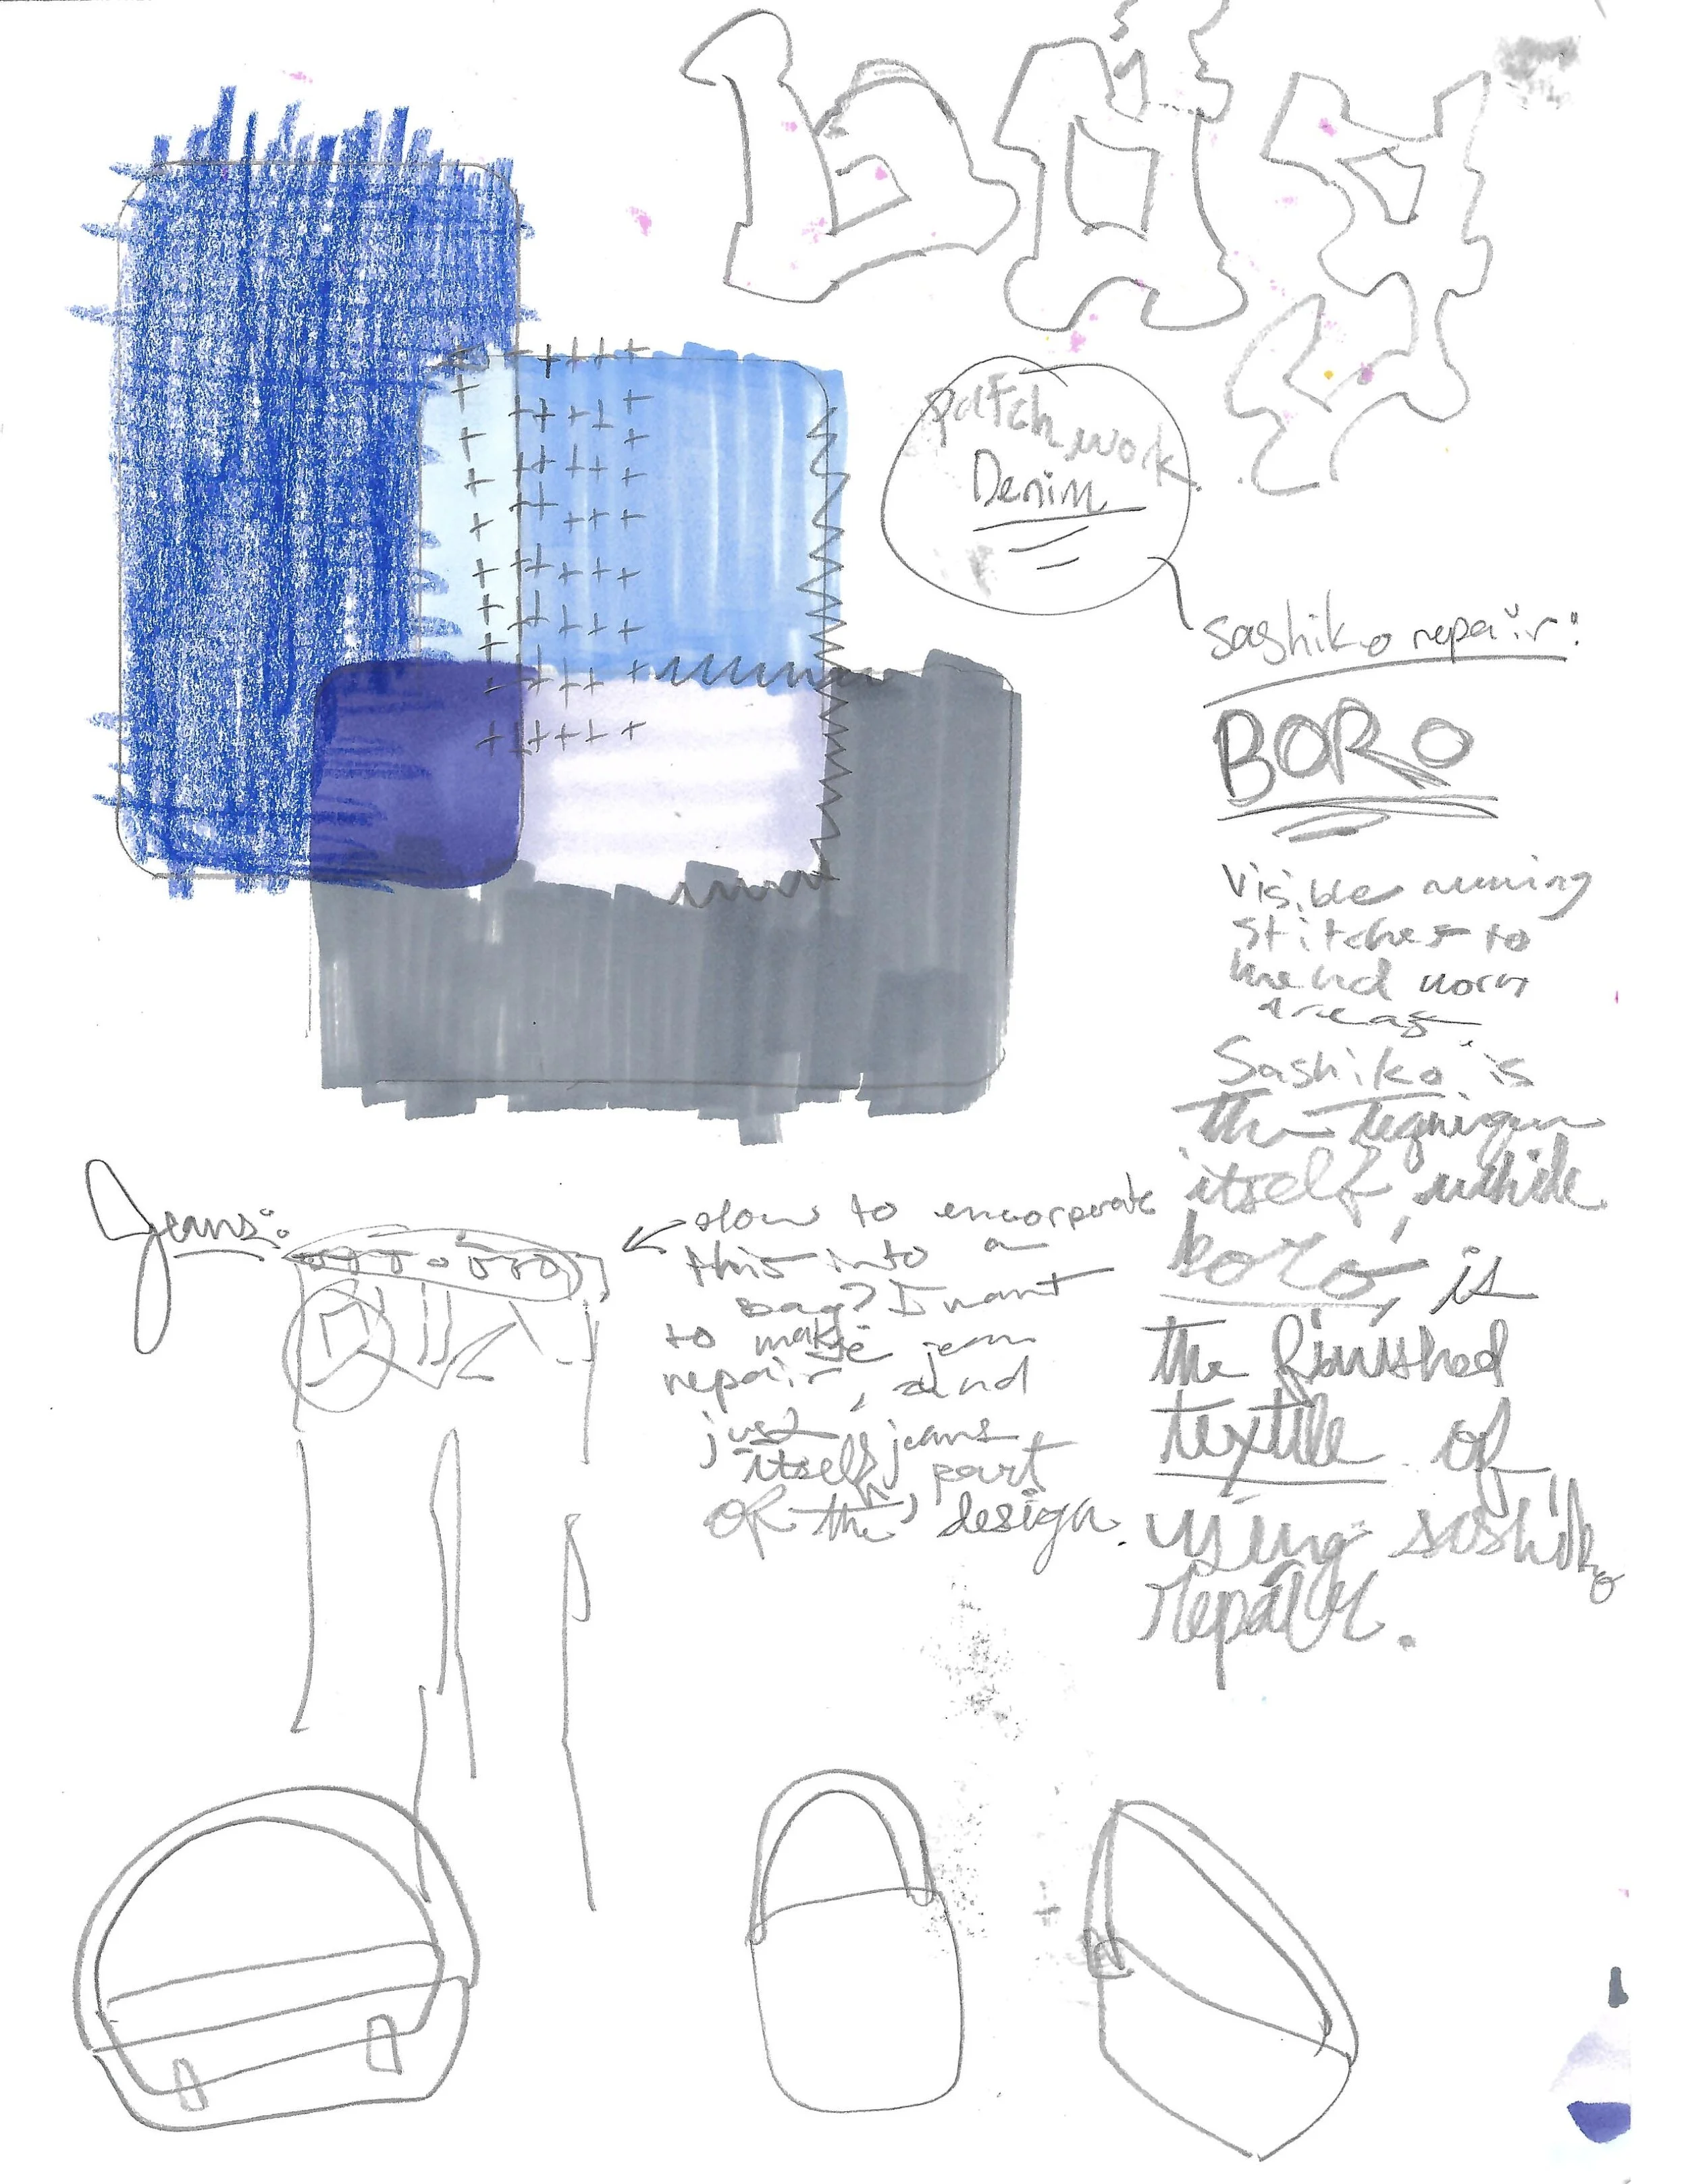 bag
patchwork
Denim
sashiko repair:
BORO
Visible running
stitches to
mend worn
areas
Sashiko is
the teqnique
itself, while
boro, is
the finished
textile of
using soshiko
repair.
Jeans:
to encorporate
this into a
bag? I want
to make jean
repair, and
just jeans
itself part
of the design.